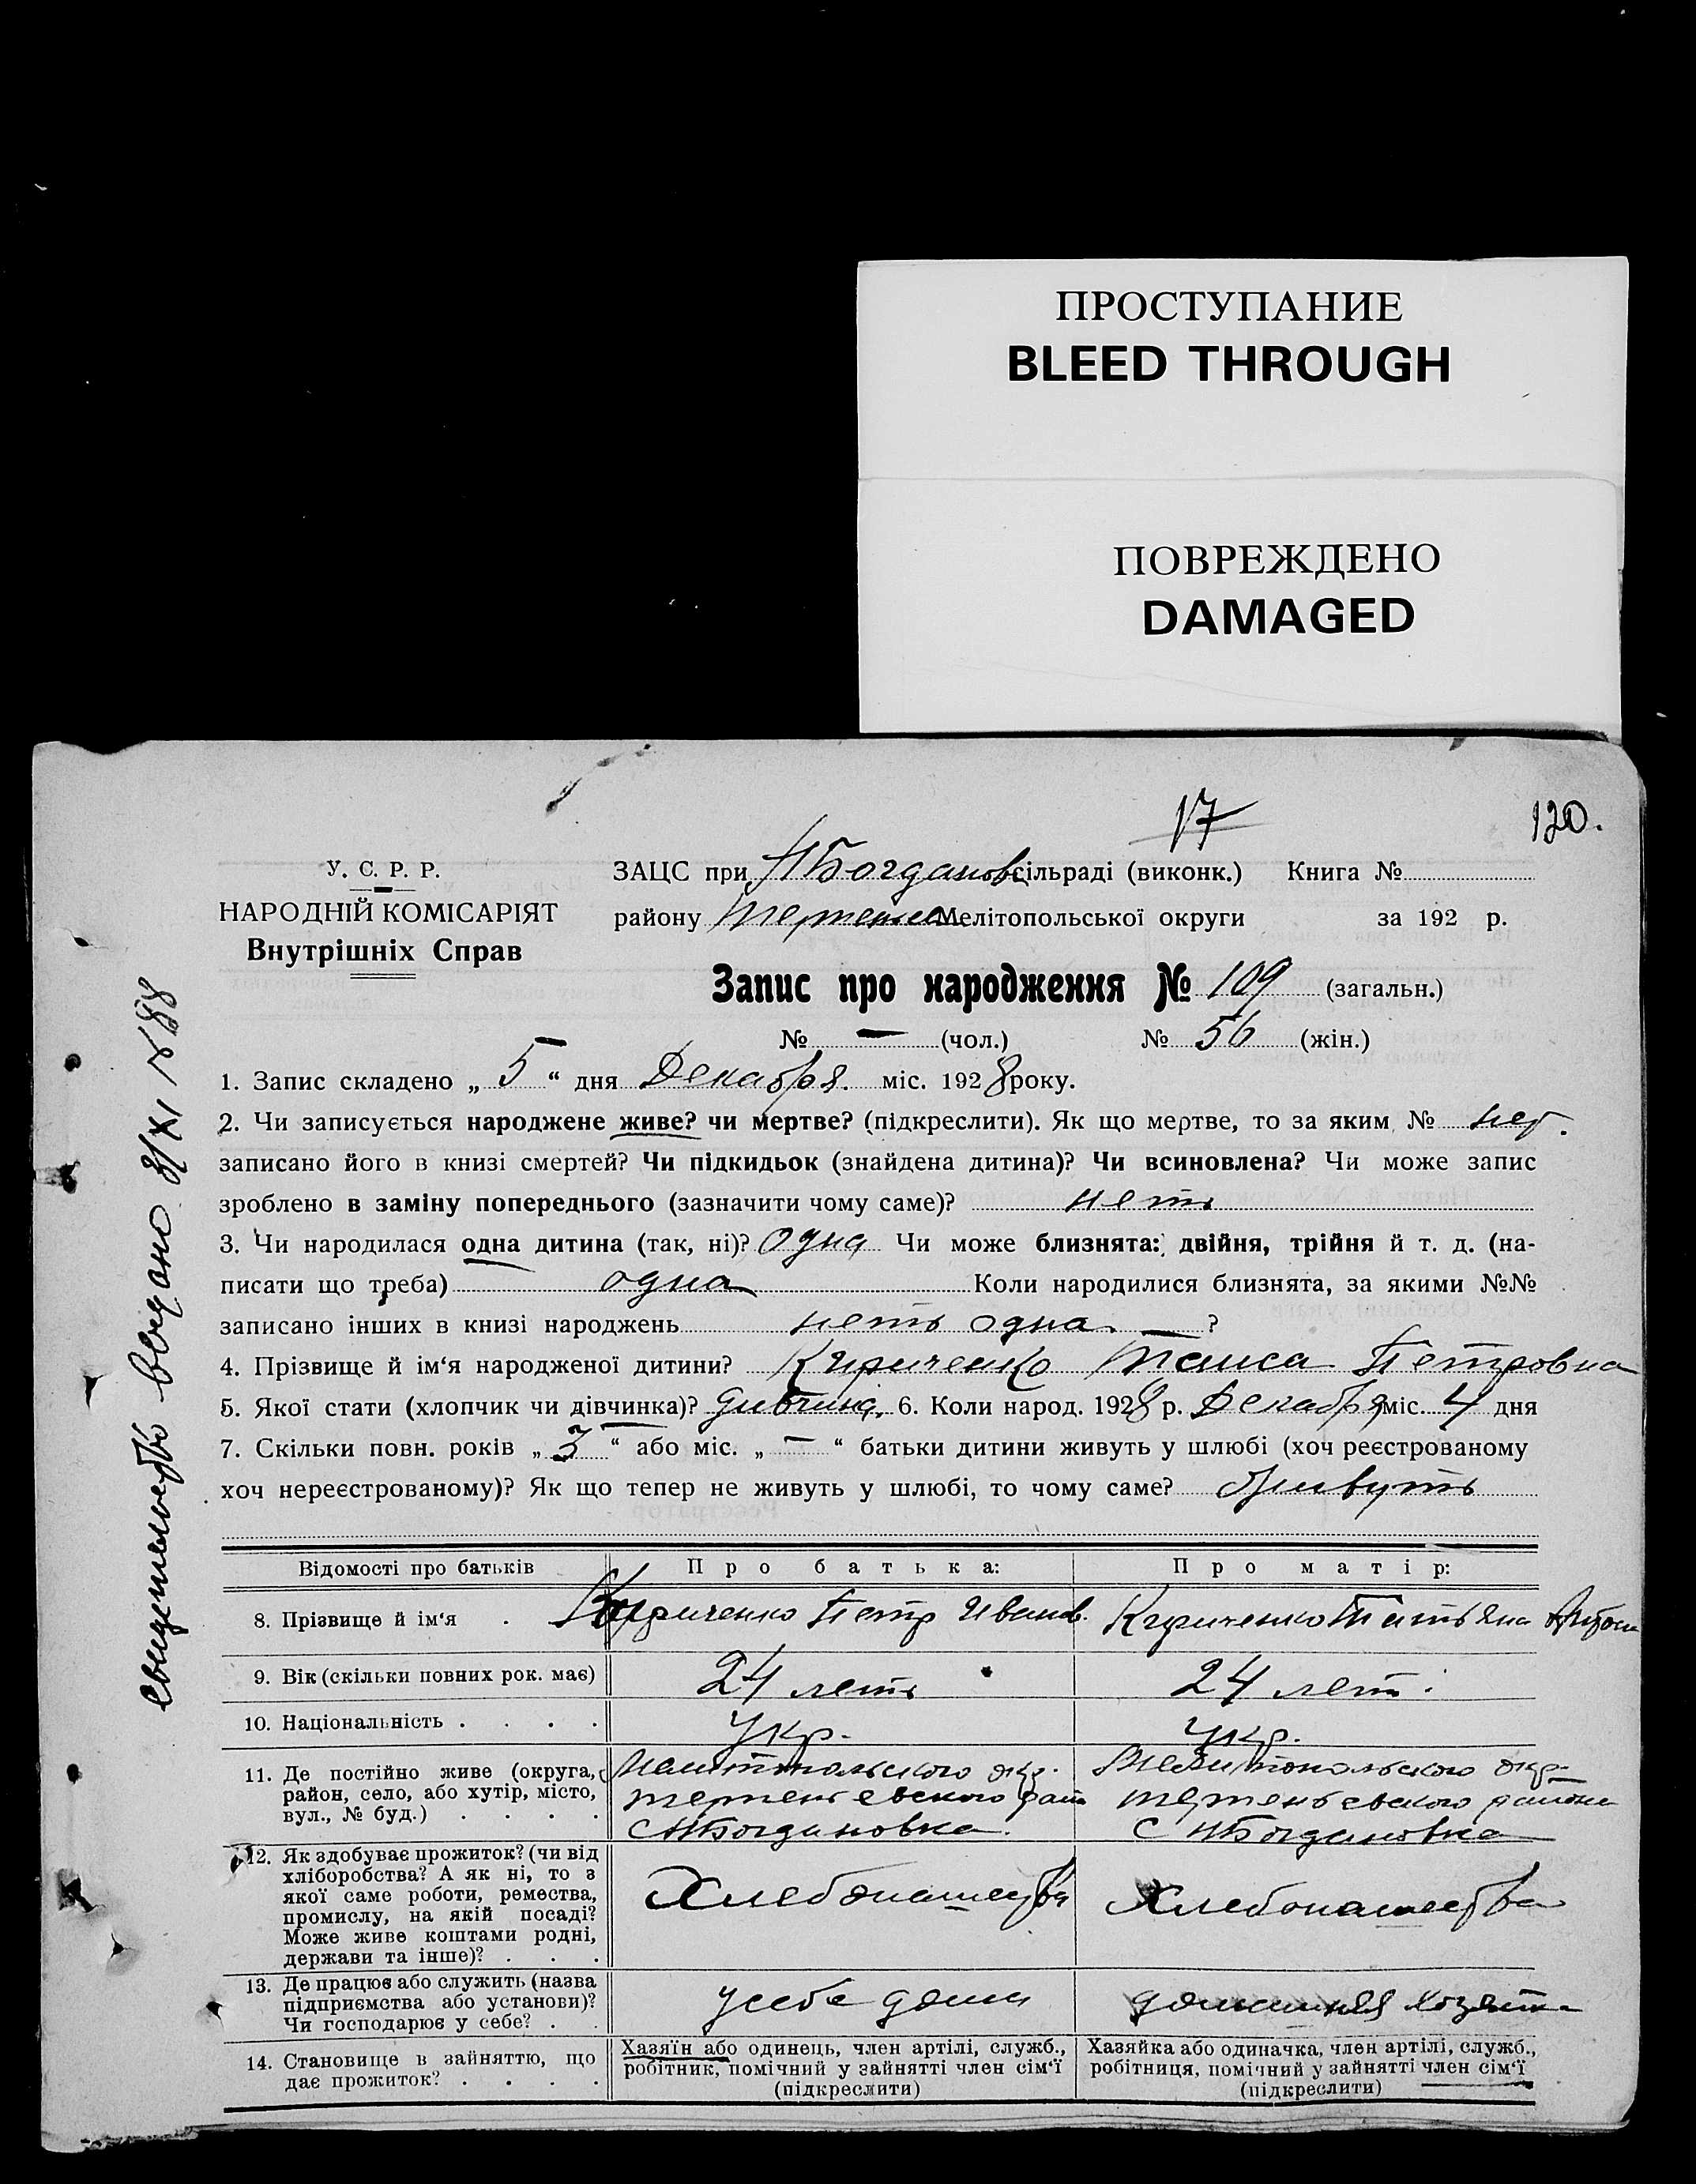 ПРОСТУПАНИЕ
BLEED THROUGH
ПОВРЕЖДЕНО
DAMAGED
17
120.
У. С. Р. Р.
НАРОДНІЙ КОМІСАРІЯТ
Внутрішніх Справ
ЗАЦС при НБогдановс сільраді (виконк.) Книга №
району Мелітопольської округи за 192 р.
Запис про народження № 109 (загальн.)
№ — (чол.) № 56 (жін.)
1. Запис складено „ 5 “ дня Декабря. міс. 1928 року.
2. Чи записується народжене живе? чи мертве? (підкреслити). Як що мертве, то за яким № нет.
записано його в книзі смертей? Чи підкидьок (знайдена дитина)? Чи всиновлена? Чи може запис
зроблено в заміну попереднього (зазначити чому саме)? неть
3. Чи народилася одна дитина (так, ні)? одна Чи може близнята: двійня, трійня й т. д. (на-
писати що треба) одна Коли народилися близнята, за якими №№
записано інших в книзі народжень неть одна. — ?
4. Прізвище й ім‘я народженої дитини? Кириченко Таиса Петровна
5. Якої стати (хлопчик чи дівчинка)? дивчина. 6. Коли народ. 1928 р. Декабря міс. 4 дня
7. Скільки повн. років „ 3 “ або міс. „ — “ батьки дитини живуть у шлюбі (хоч реєстрованому
хоч нереєстрованому)? Як що тепер не живуть у шлюбі, то чому саме? живуть
Відомості про батьків Про батька: Про матір:
8. Прізвище й ім‘я . Кириченко Петр Иванов. Кириченко Татьяна
9. Вік (скільки повних рок. має) 24 леть 24 лет.
10. Національність . . . . Укр. Укр.
11. Де постійно живе (округа, район, село, або хутір, місто, вул., № буд.) . . . .
Мелитопольского окр. терпеньевского райо СНБогдановка.
Мелитопольского окр. терпеньевского района С НБогдановка
12. Як здобуває прожиток? (чи від хліборобства? А як ні, то з якої саме роботи, ремества, промислу, на якій посаді? Може живе коштами родні, держави та інше)? . . .
Хлебопашества
Хлебопашества
13. Де працює або служить (назва підприємства або установи)? Чи господарює у себе? . .
усебе дома
домашняя хозяйка
14. Становище в зайняттю, що дає прожиток? . . . .
Хазяїн або одинець, член артілі, служб., робітник, помічний у зайнятті член сім‘ї (підкреслити)
Хазяйка або одиначка, член артілі, служб., робітниця, помічний у зайнятті член сім‘ї (підкреслити)
свидетельство выдано 3/XI N88